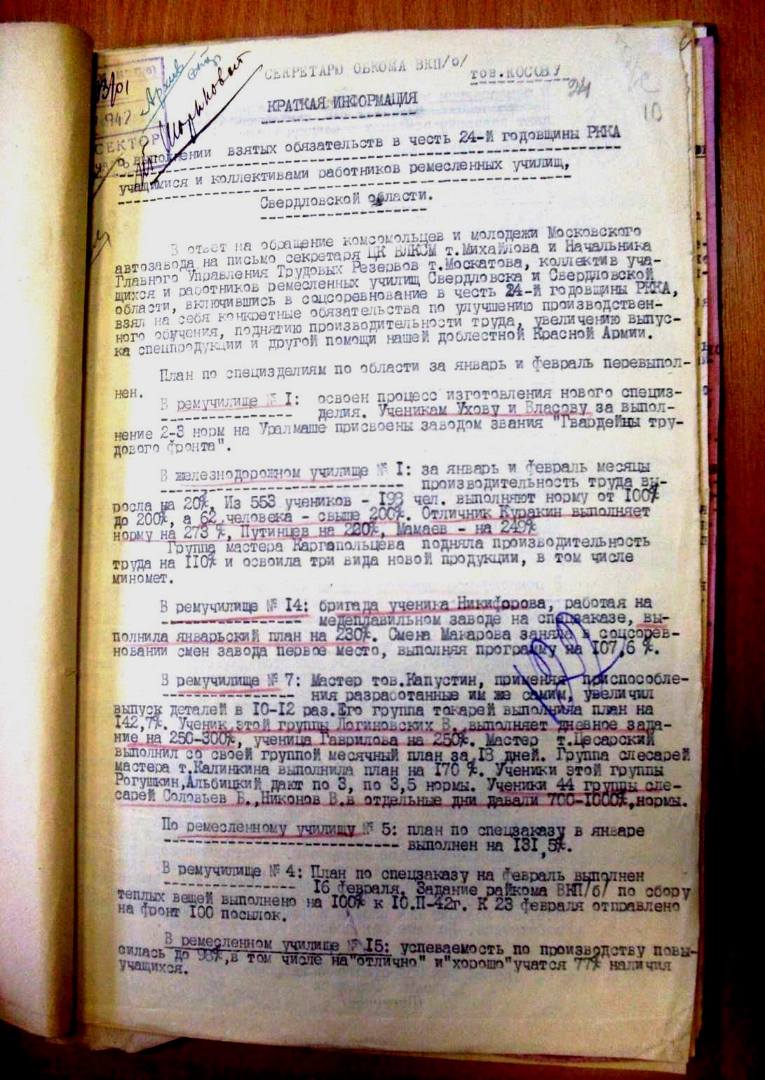 СЕКРЕТАРЮ ОБКОМА ВКП/б/
тов.КОСОВУ
24
10
1942
СЕКТОР
КРАТКАЯ ИНФОРМАЦИЯ
о выполнении взятых обязательств в честь 24-й годовщины РККА
учащимися и коллективами работников ремесленных училищ,
Свердловской области.
В ответ на обращение комсомольцев и молодежи Московского
автозавода на письмо секретаря ЦК ВЛКСМ т.Михайлова и Начальника
Главного Управления Трудовых Резервов т.Москатова, коллектив уча-
щихся и работников ремесленных училищ Свердловска и Свердловской
области, включившись в соцсоревнование в честь 24-й годовщины РККА,
взял на себя конкретные обязательства по улучшению производствен-
ного обучения, поднятию производительности труда, увеличению выпус-
ка спецпродукции и другой помощи нашей доблестной Красной Армии.
План по специзделиям по области за январь и февраль перевыпол-
нен.
В ремучилище № I: освоен процесс изготовления нового специз-
делия. Ученикам Ухову и Власову за выпол-
нение 2-3 норм на Уралмаше присвоены заводом звания "Гвардейцы тру-
дового фронта".
В железнодорожном училище № I: за январь и февраль месяцы
производительность труда вы-
росла на 20%. Из 553 учеников - 198 чел. выполняют норму от 100%
до 200%, а 62 человека - свыше 200%. Отличник Куракин выполняет
норму на 273 %, Путинцев на 220%, Мамаев - на 249%
Группа мастера Каргапольцева подняла производительность
труда на 110% и освоила три вида новой продукции, в том числе
миномет.
В ремучилище № 14: бригада ученика Никифорова, работая на
медеплавильном заводе на спецзаказе, вы-
полнила январский план на 230%. Смена Макарова заняла в соцсорев-
новании смен завода первое место, выполняя программу на 107,6 %.
В ремучилище № 7: Мастер тов.Капустин, применяя приспособле-
ния разработанные им же самим, увеличил
выпуск деталей в 10-12 раз.Его группа токарей выполнила план на
142,7%. Ученик этой группы Логиновских В.,выполняет дневное зада-
ние на 250-300%, ученица Гаврилова на 250%. Мастер т.Цесарский
выполнил со своей группой месячный план за 18 дней. Группа слесарей
мастера т.Калинкина выполнила план на 170 %. Ученики этой группы
Рогушкин,Альбицкий дают по 3, по 3,5 нормы. Ученики 44 группы сле-
сарей Соловьев Б.,Никонов В.в отдельные дни давали 700-1000%,нормы.
По ремесленному училищу № 5: план по спецзаказу в январе
выполнен на 131,5%.
В ремучилище № 4: План по спецзаказу на февраль выполнен
16 февраля. Задание райкома ВКП/б/ по сбору
теплых вещей выполнено на 100% к 10.П-42г. К 23 февраля отправлено
на фронт 100 посылок.
В ремесленном училище № 15: успеваемость по производству повы-
силась до 98%,в том числе на"отлично" и"хорошо"учатся 77% наличия
учащихся.